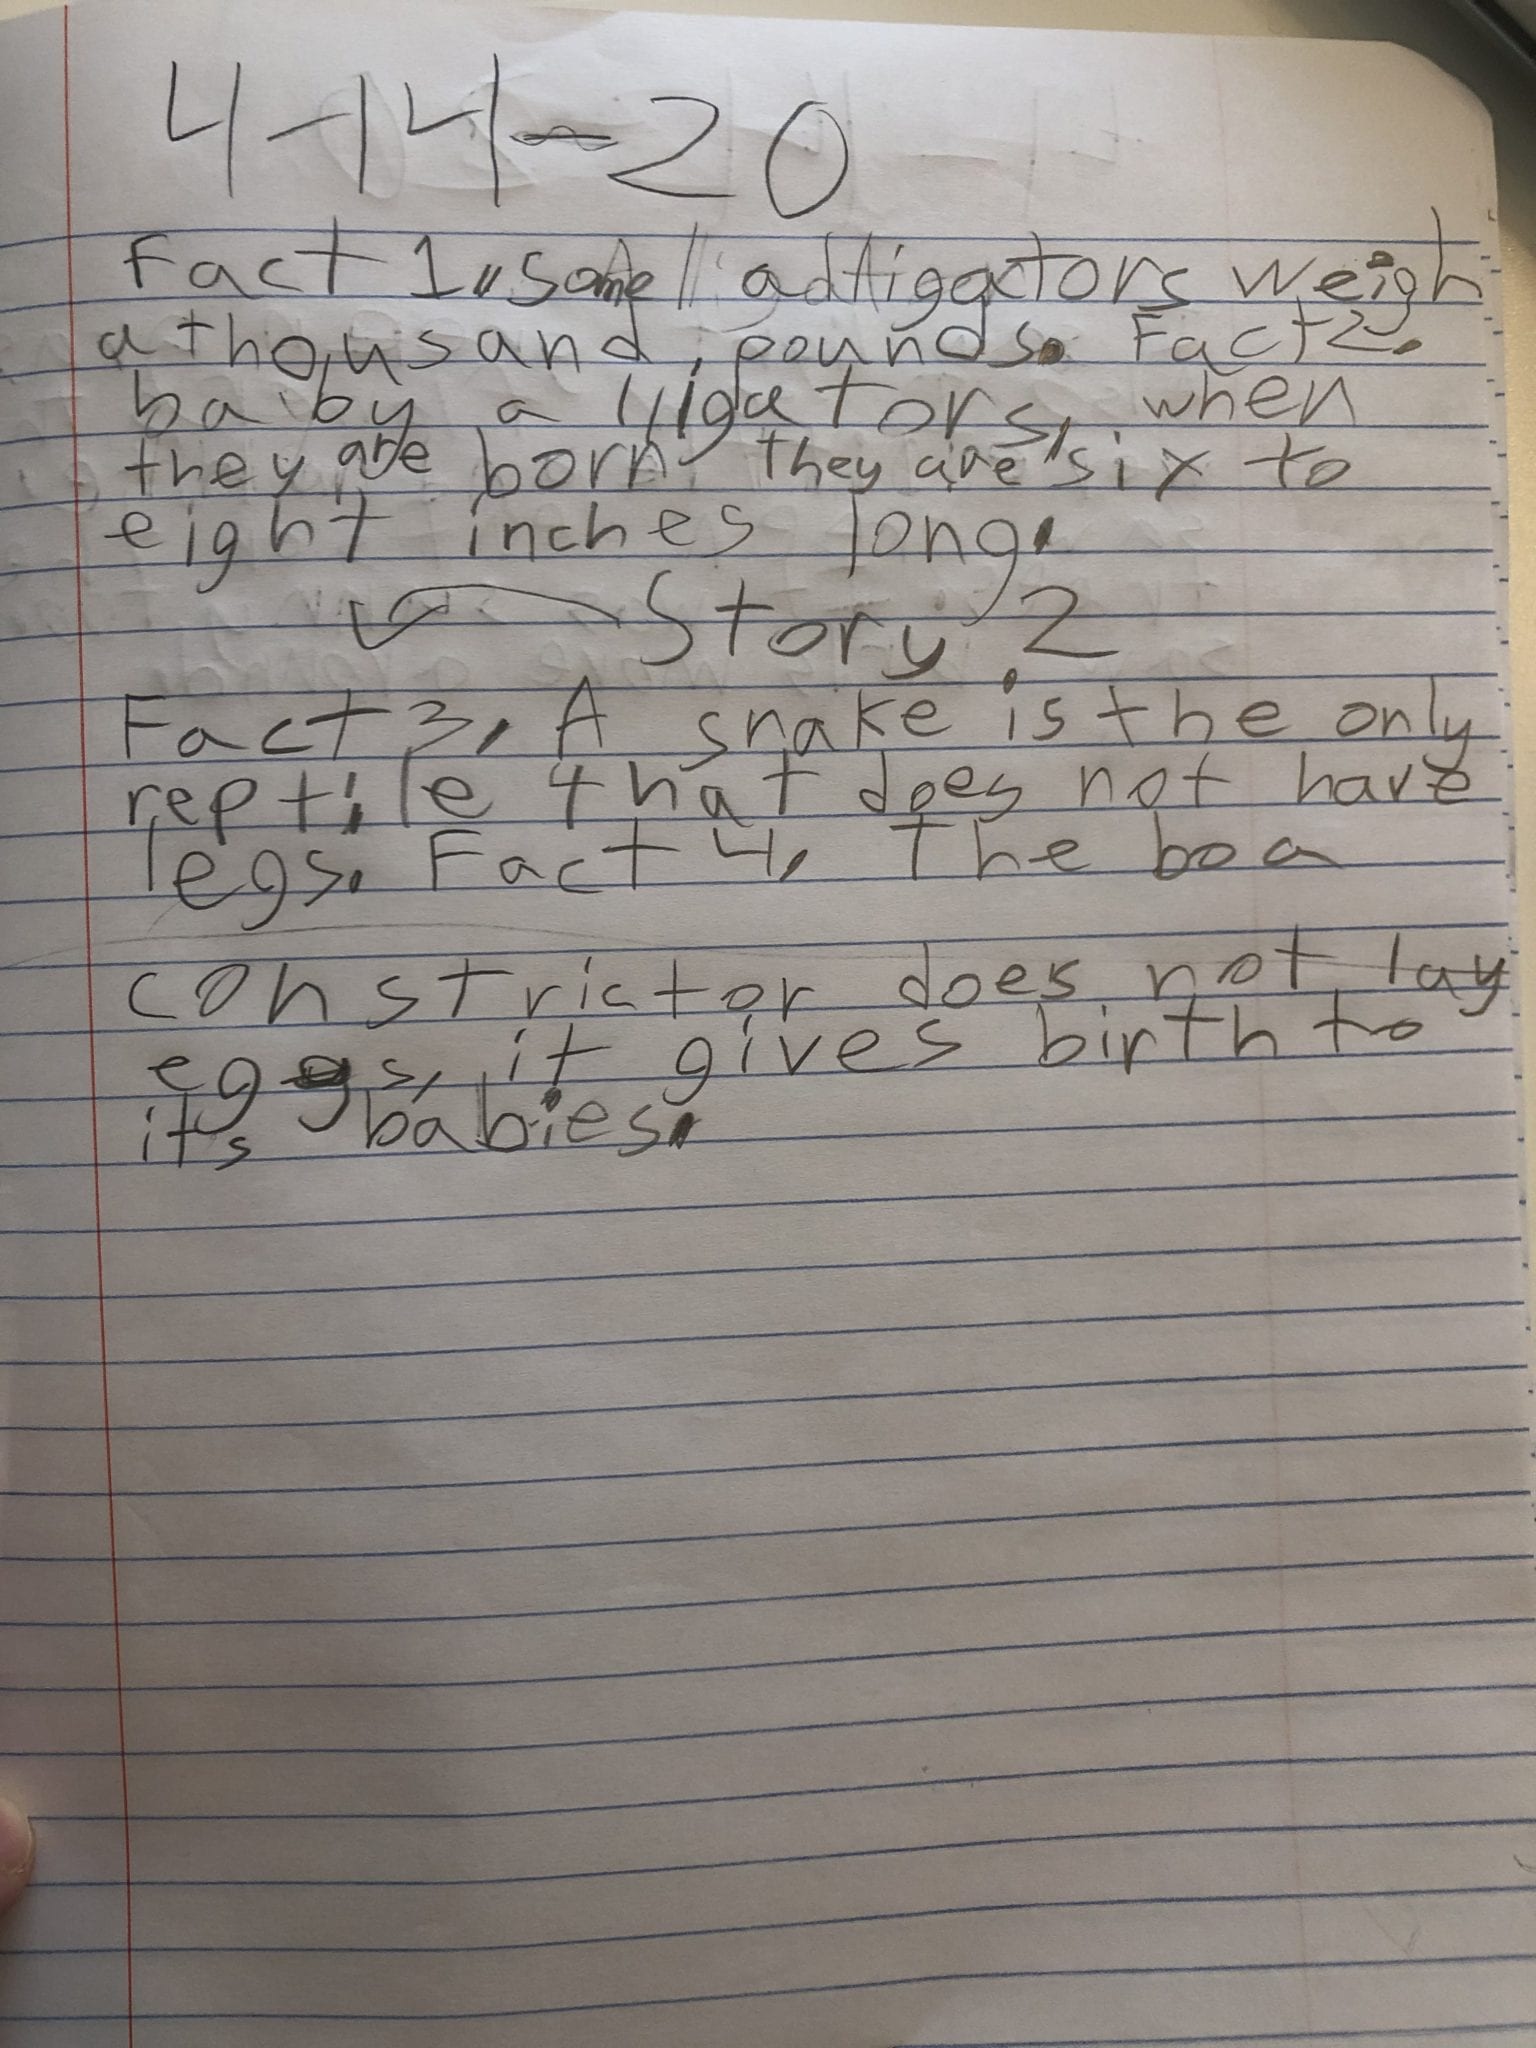 4-14-20
Fact 1. some alligators weigh
a thousand pounds. Fact 2.
baby alligators, when
they are born they are six to
eight inches long.
Story 2
Fact 3. A snake is the only
reptile that does not have
legs. Fact 4. The boa
constrictor does not lay
eggs, it gives birth to
its babies.